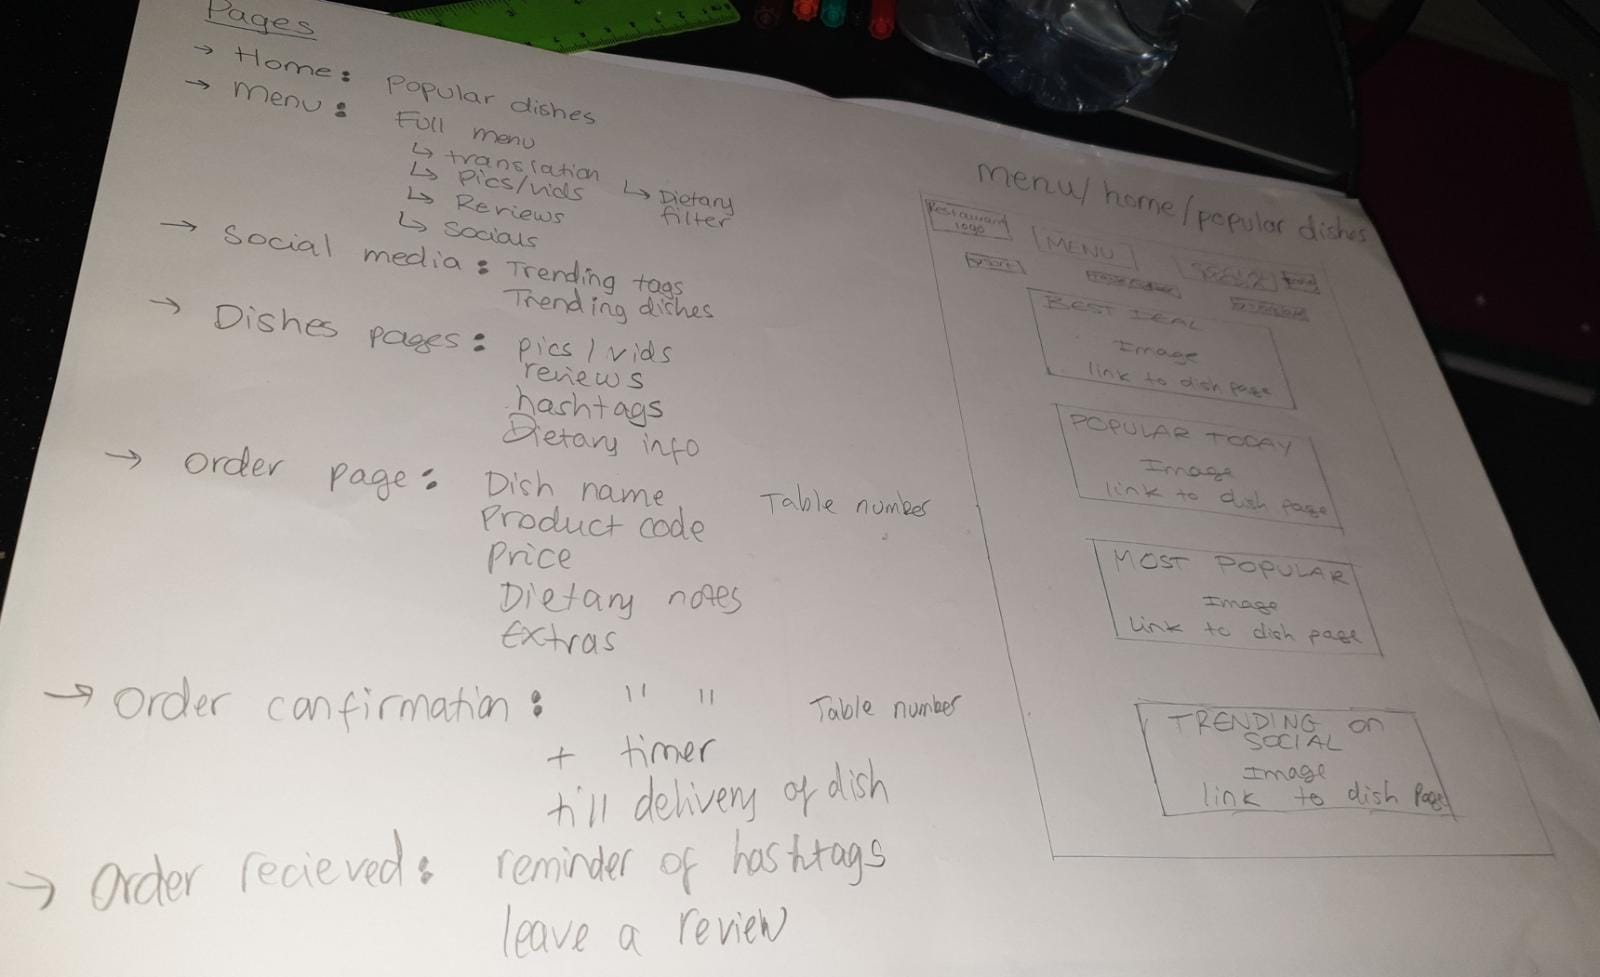 Pages
→ Home: Popular dishes
→ Menu: Full menu
↳ translation
↳ Pics/vids ↳ Dietary filter
↳ Reviews
↳ Socials
→ Social media: Trending tags
Trending dishes
→ Dishes pages: pics/vids
reviews
hashtags
Dietary info
→ Order page: Dish name Table number
Product code
Price
Dietary notes
Extras
→ Order confirmation: " " Table number
+ timer
till delivery of dish
→ Order recieved: reminder of hashtags
leave a review
menu/home/popular dishes
Restaurant logo
MENU
BEST DEAL
Image
link to dish page
POPULAR TODAY
Image
link to dish page
MOST POPULAR
Image
link to dish page
TRENDING on
SOCIAL
Image
link to dish page